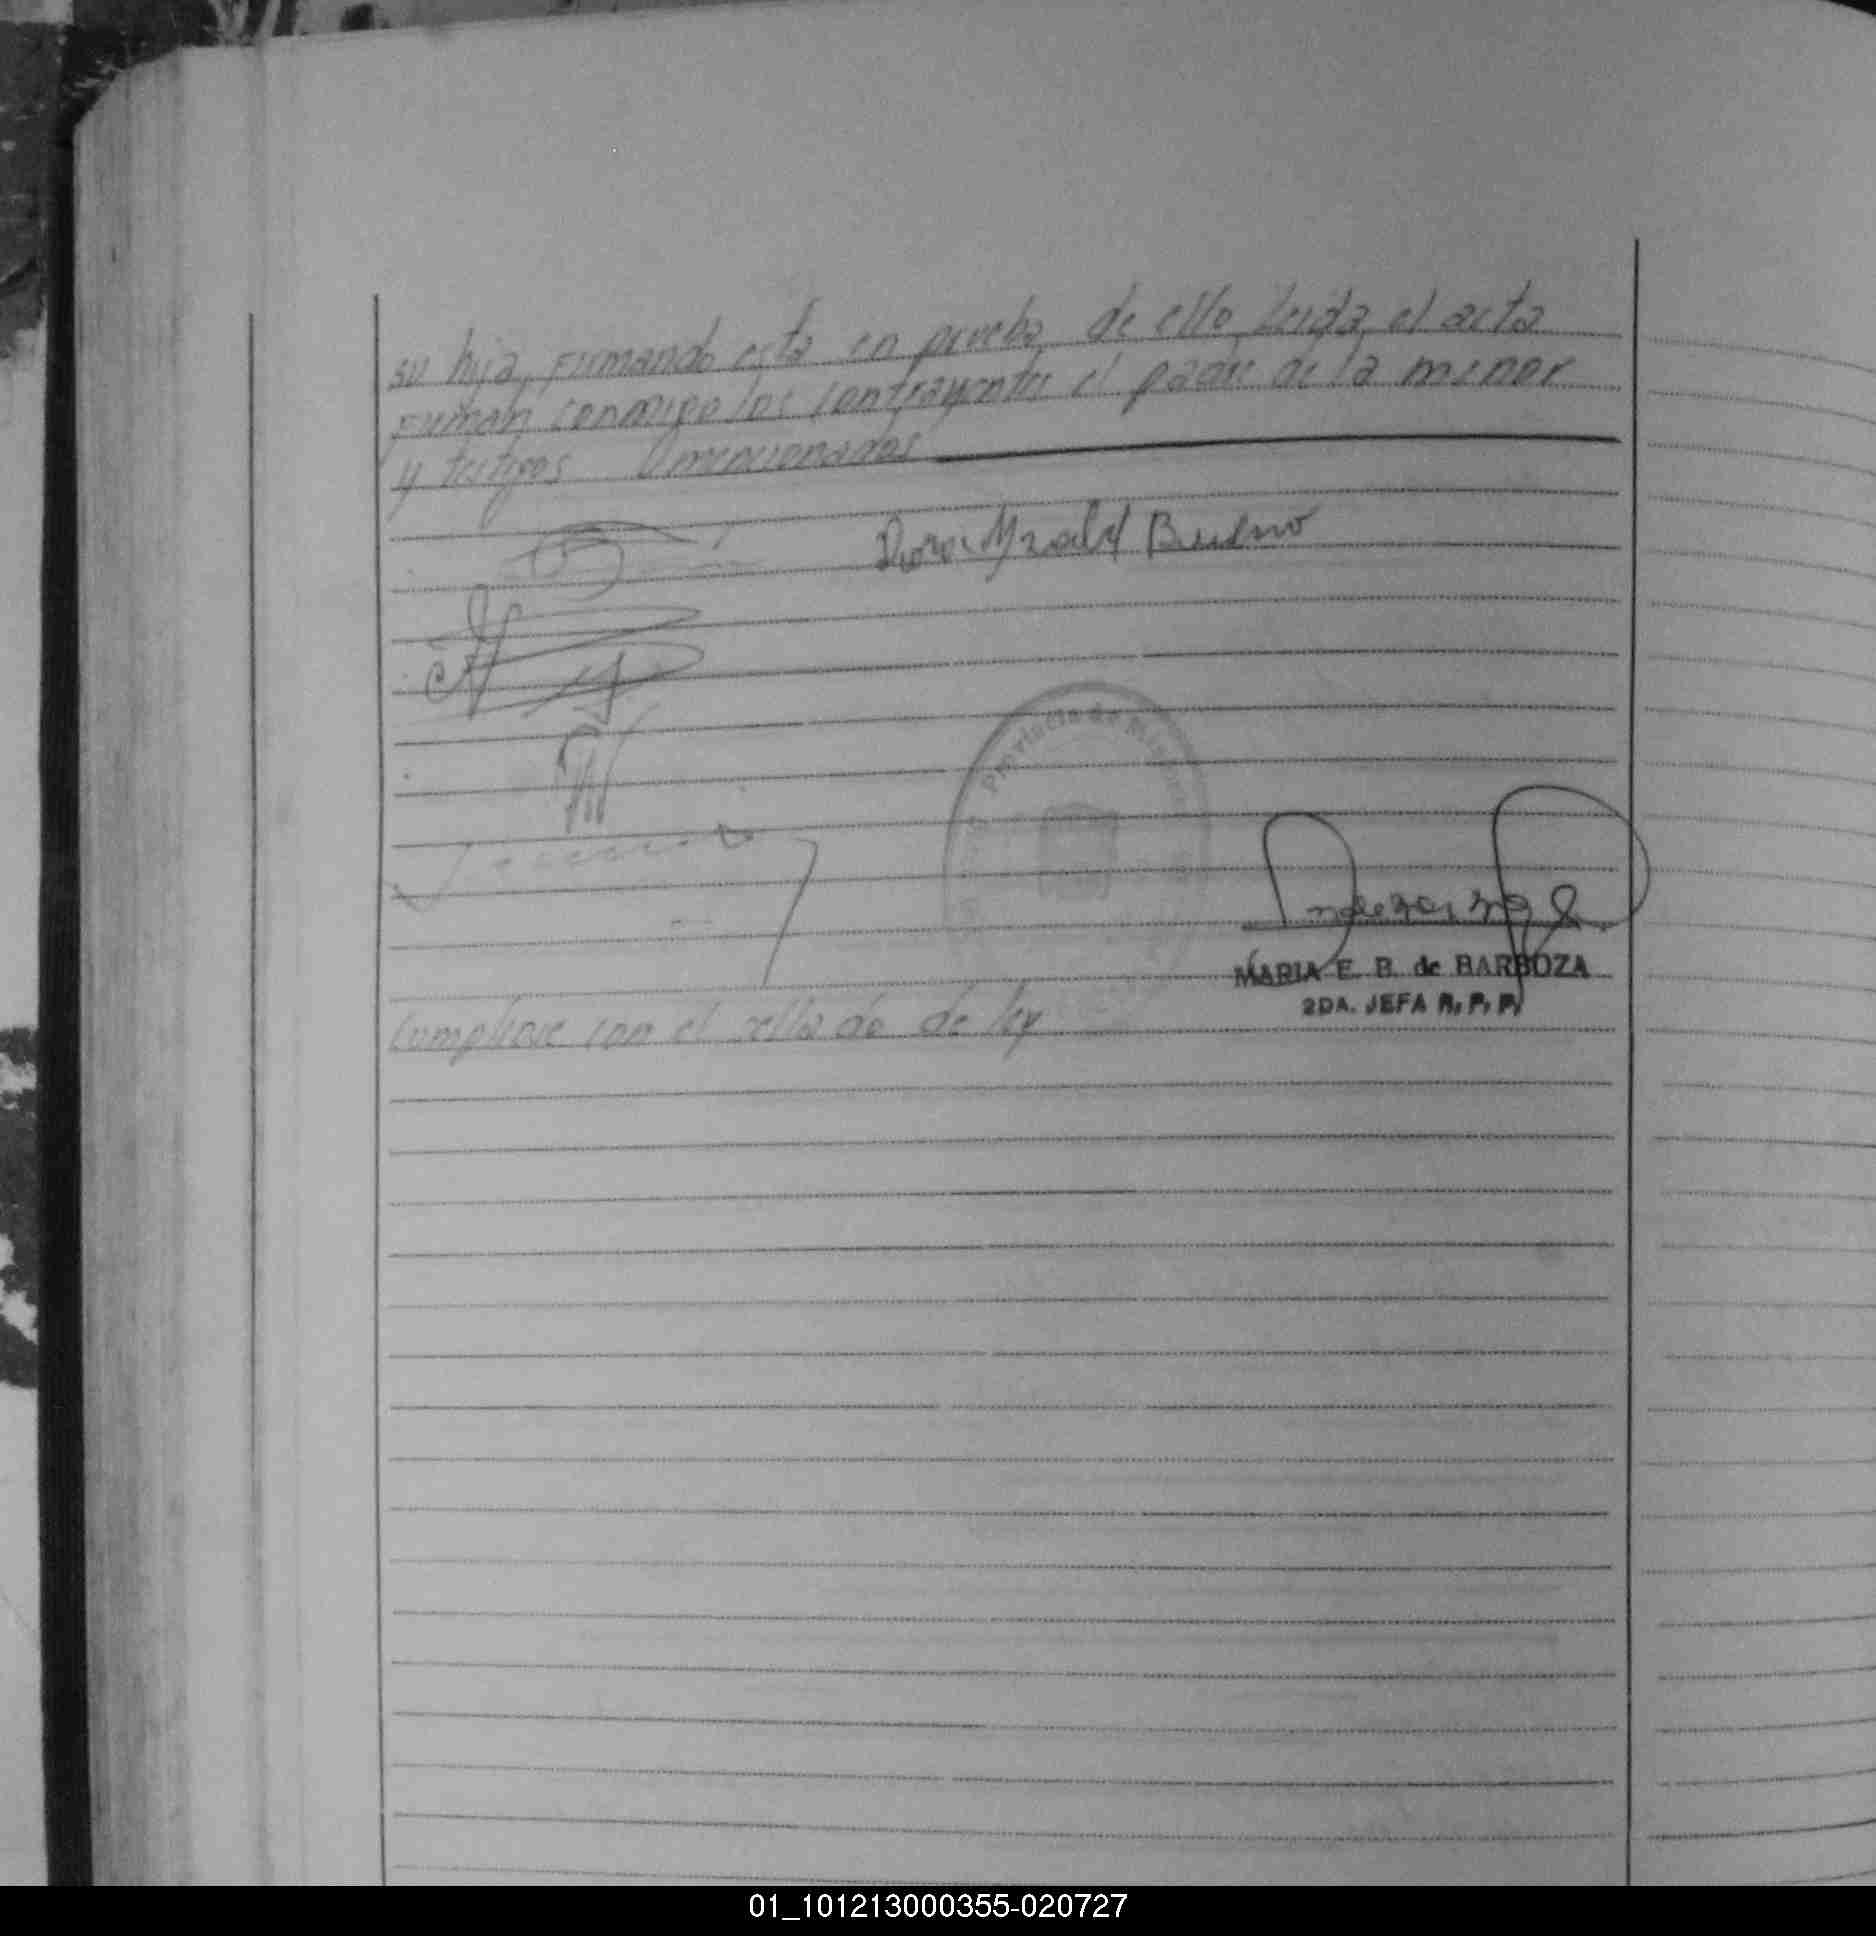 su hija, Firmando esta en prueba de ello Leida el acta
Firman conmigo los contrayentes el padre de la menor
y testigos mencionados
Bueno
Provincia de Misiones
MARIA E. B. de BARBOZA
2DA. JEFA R. P. P.
Cumplióse con el sellado de ley
01_101213000355-020727